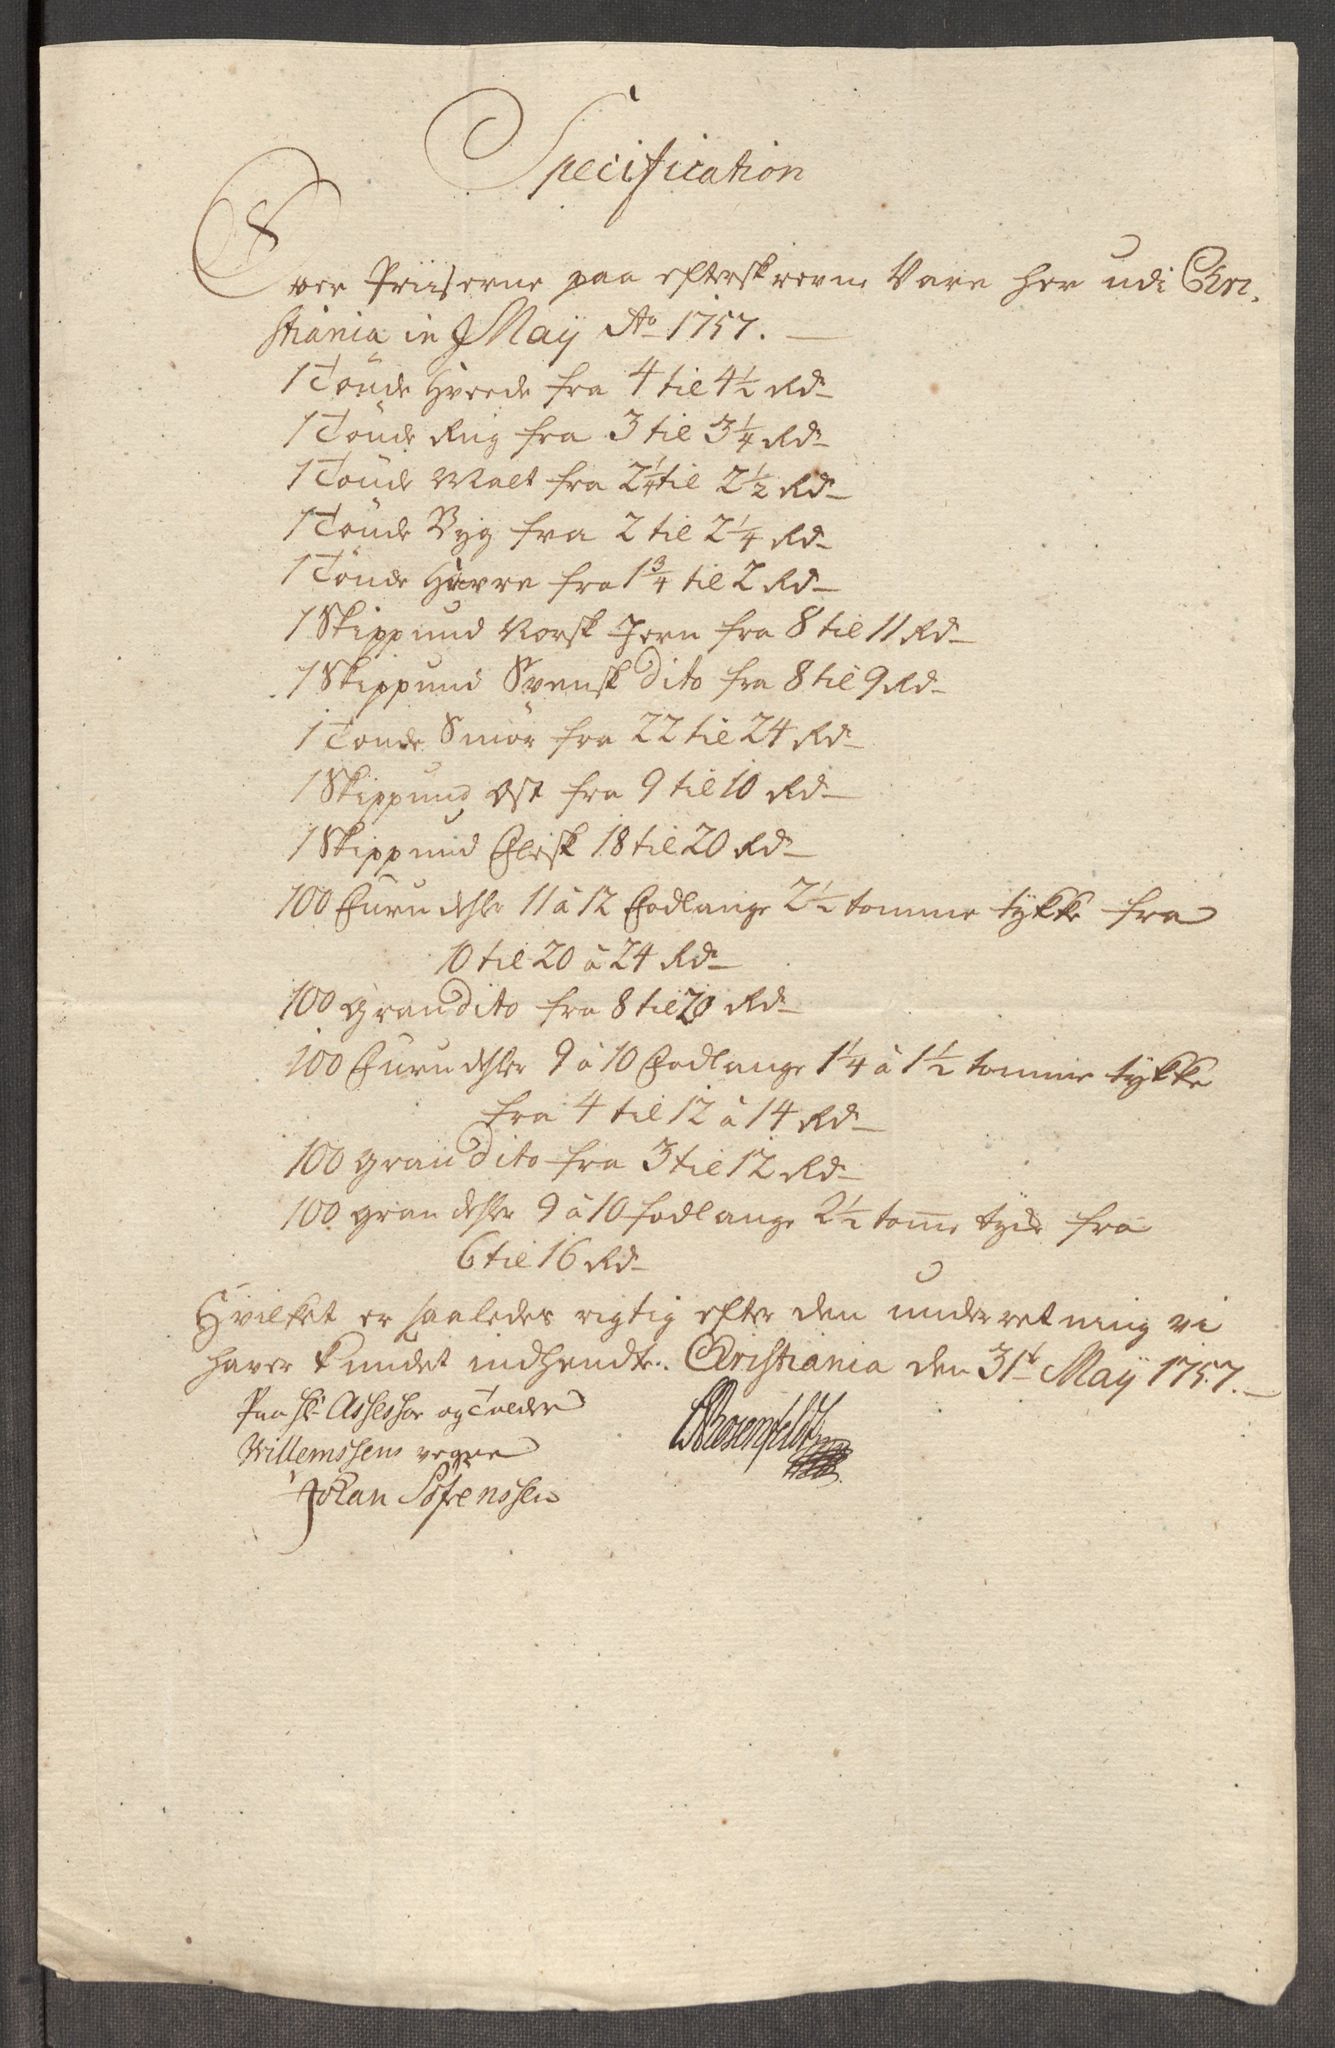 Specification
Over Priiserne paa efterskrevne Vare her udi Chri,
stiania in May Ao 1757.
1 Tönde Hvede fra 4 til 4½ Rdr
1 Tönde Rug fra 3 til 3¼ Rdr
1 Tönde Malt fra 2¼ til 2½ Rdr
1 Tönde Byg fra 2 til 2¼ Rdr
1 Tönde Havre fra 1¾ til 2 Rdr
1 Skippund Norsk Jern fra 8 til 11 Rdr
1 Skippund Svensk Dito fra 8 til 9 Rdr
1 Tönde Smör fra 22 til 24 Rdr
1 Skippund Ost fra 9 til 10 Rdr
1 Skippund Flesk 18 til 20 Rdr
100 Furu dehler 11 à 12 Fod lange 2½ tomme tÿkke fra
10 til 20 à 24 Rdr
100 Gran Dito fra 8 til 20 Rdr
100 Furu dehler 9 à 10 Fod lange 1¼ à 1½ tomme tÿkke
fra 4 til 12 à 14 Rdr
100 gran Dito fra 3 til 12 Rdr
100 gran dehler 9 à 10 fod lange 2½ tome fra
6 til 16 Rdr
Hvilket er saaledes rigtig efter den underretning vi
haver kundet indhendte. Christiania den 31t Maÿ 1757.
Paa Hr Assessor og Tolder
Willemssens vegne
Johan Sörenssen
NRosenfeldt